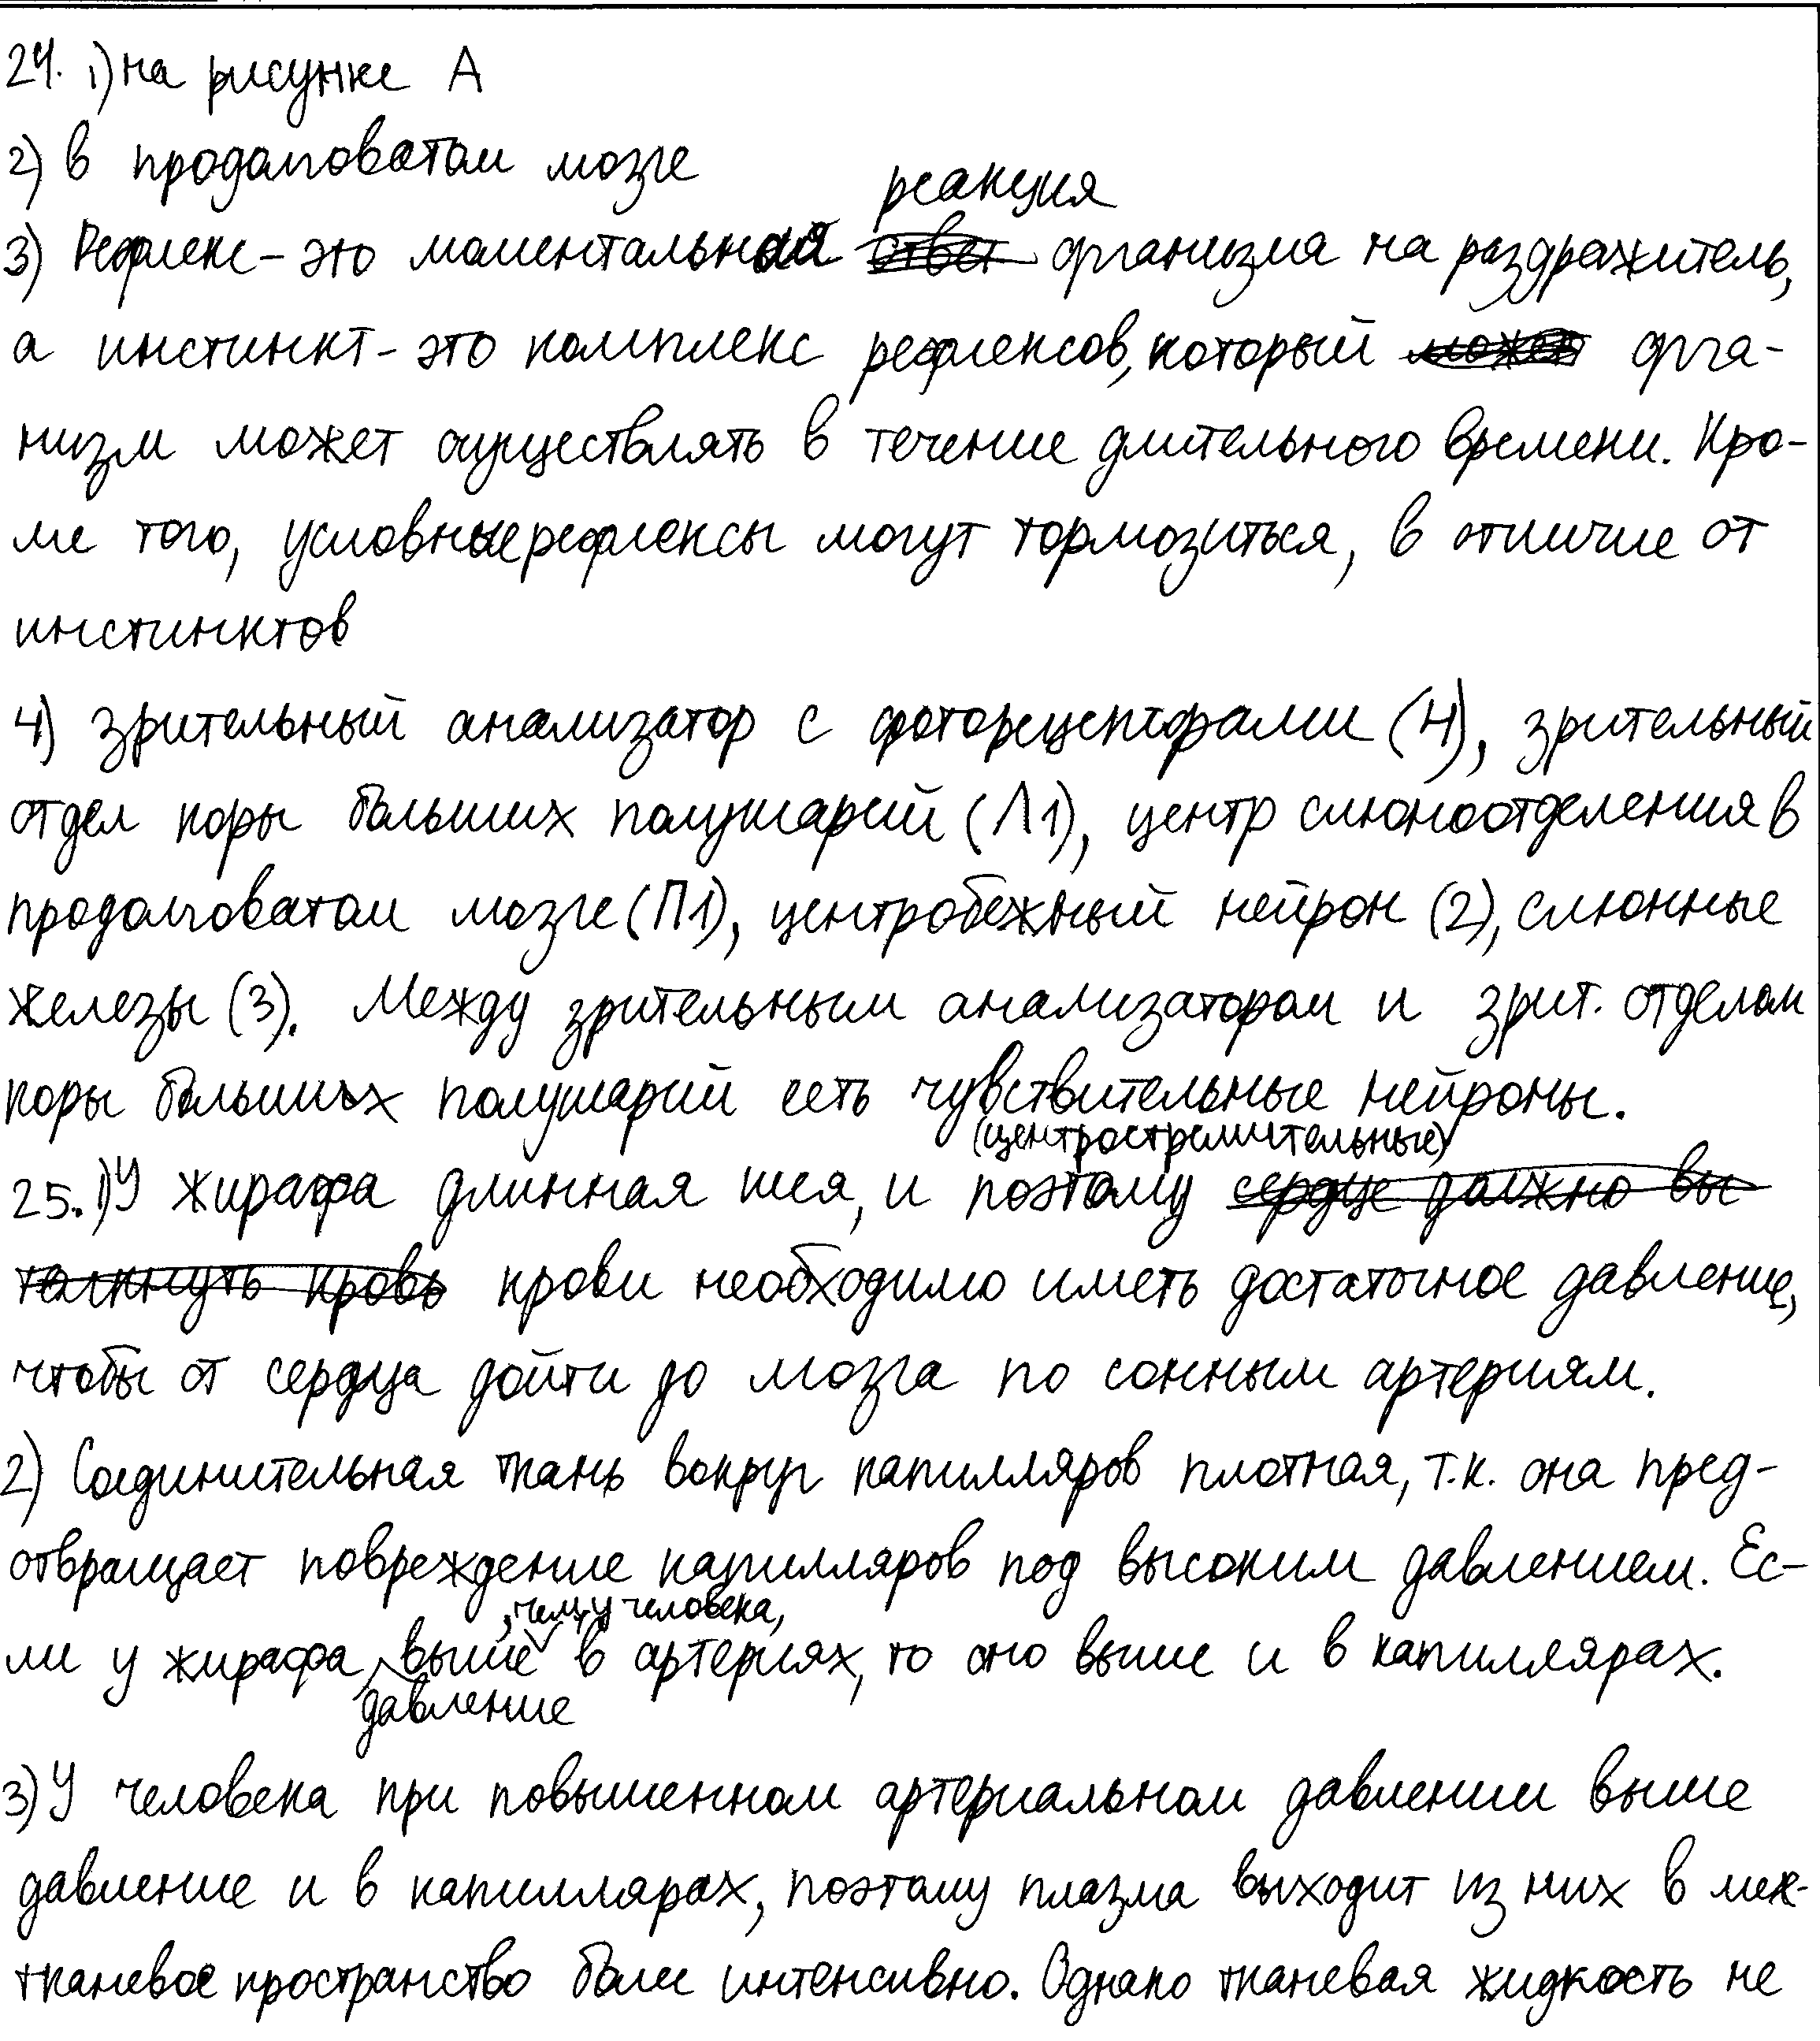 24. 1) на рисунке А
2) в продолговатом мозге
3) Рефлекс - это моментальная реакция организма на раздражитель,
а инстинкт - это комплекс рефлексов, который орга-
низм может осуществлять в течение длительного времени. Кро-
ме того, условные рефлексы могут тормозиться, в отличие от
инстинктов
4) зрительный анализатор с фоторецепторами (4), зрительный
отдел коры больших полушарий (Л1), центр слюноотделения в
продолговатом мозге (П1), центробежный нейрон (2), слюнные
железы (3). Между зрительным анализатором и зрит. отделом
коры больших полушарий есть чувствительные нейроны.
(центростремительные)
25. 1) У жирафа длинная шея, и поэтому сердце должно вы
толкнуть кровь крови необходимо иметь достаточное давление,
чтобы от сердца дойти до мозга по сонным артериям.
2) Соединительная ткань вокруг капилляров плотная, т.к. она пред-
отвращает повреждение капилляров под высоким давлением. Ес-
ли у жирафа давление выше, чем у человека, в артериях, то оно выше и в капиллярах.
3) У человека при повышенном артериальном давлении выше
давление и в капиллярах, поэтому плазма выходит из них в меж-
тканевое пространство более интенсивно. Однако тканевая жидкость не